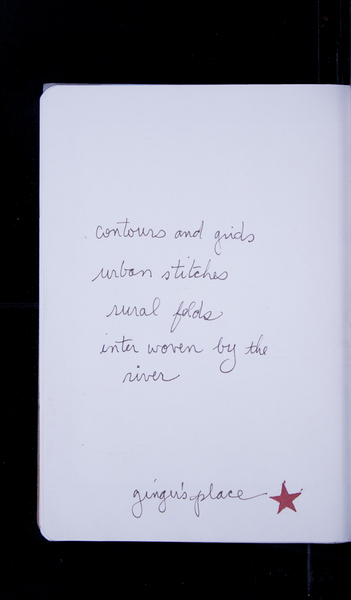 contours and grids
urban stitches
rural folds
inter woven by the
river
ginger's place